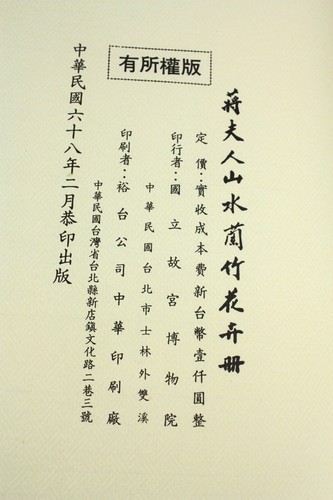 蔣夫人山水蘭竹花卉冊
定價:實收成本費新台幣壹仟圓整
印行者:國立故宮博物院
中華民國台北市士林外雙溪
印刷者:裕台公司中華印刷廠
中華民國台灣省台北縣新店鎮文化路二巷三號
中華民國六十八年二月恭印出版
有所權版